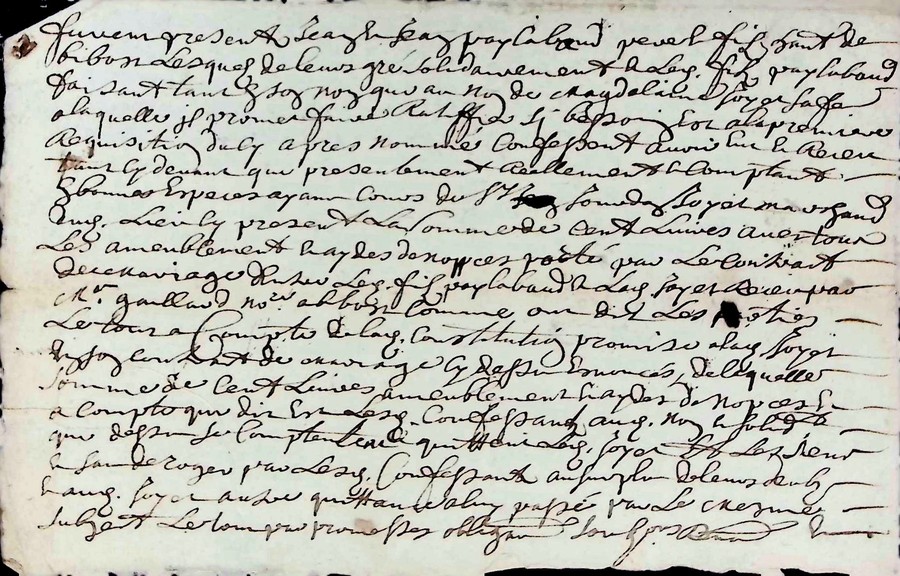 furent presents Jean & Jean paylabaud pere & filz hant de
bibost Lesquels de leurs gré solidairement & Led. filz paylabaud
faisant tant en son nom que au nom de Magdelaine soyer sa fe
a laquelle il promet faire Ratiffier sy besoin Est a la premiere
Requisition du cy apres nommé Confessent avoir Eu & Receu
tant cy devant que presentement Reallement & Comptant
En bonnes Especes ayant cours de soyer marchand
aud. Lieu cy present La somme de Cent Livres avec tous
Les ameublement & aydes de nopces porté par Le Contract
de mariage d'entre Led. filz paylabaud & Lad. soyer Receu par
Me gaillard nore Comme ont dit Les parties
Le tout a Compte de lad. Constitution promise a lad. soyer
En son contract de mariage cy dessus Enoncé, de laquelle
somme de Cent Livres ameublement & aydes de nopces &
a compte que dit Est Lesd. Confessant aud. nom & solidité
que dessus se Contentent & quittent Led. soyer & Les siens
& par Lesd. Confessant au surplus de leurs
& aud. soyer autre quittance a luy passé par Le mesme
subject Le tout par promesses obligaon soubzons Renon &